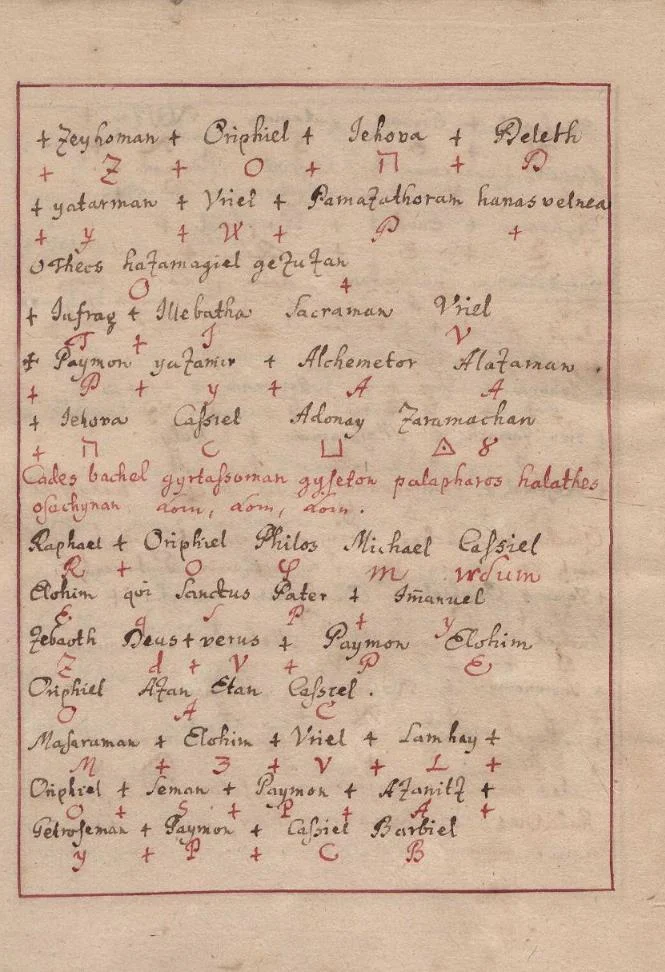 + Zeyhoman + Oriphiel + Iehova + Beleth
+ Z + O + Π + B
+ yatarman + Vriel + Pamazathoram hanas velnea
+ y + V + P +
O Theos hazamagiel gezuzan
O +
+ Iufrag + Illebatha Sacraman Vriel
I + I V
+ Paymon yazamir + Alchemetor Alazaman .
+ P + y + A A
+ Iehova Cassiel Adonay Zaramachan
+ Π C 8
Cades bachel gyrtassoman gyseton palapharos halathes
osachynan dom, dom, dom .
Raphael + Oriphiel Philos Michael Cassiel
R + O φ m
Elohim qui Sanctus Pater + Im̄anuel
E q S P + y
Zebaoth Deus + verus + Paymon Elohim
Z d + V + P E
Oriphiel Azan Etan Cassiel .
O A C
Masaraman + Elohim + Vriel + Lamhay +
M + 3 + V + L +
Oriphiel + Seman + Paymon + Azanitz +
O + S + P + A +
Getroseman + Paymon + Cassiel Barbiel
y + P + C B